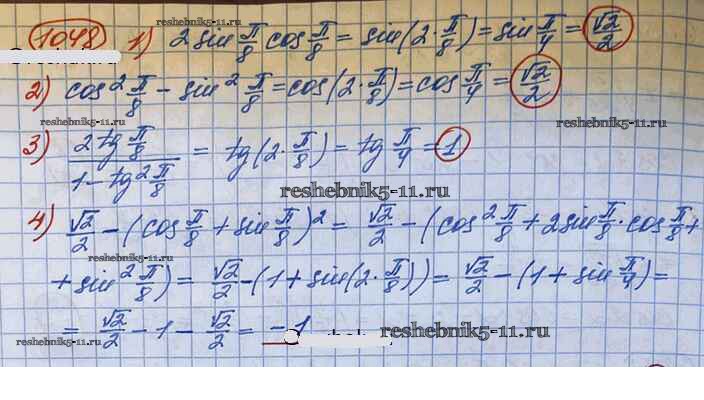 reshebnik5-11.ru
1048 1) 2 sin π/8 cos π/8 = sin(2·π/8) = sin π/4 = √2/2
2) cos² π/8 − sin² π/8 = cos(2·π/8) = cos π/4 = √2/2
reshebnik5-11.ru reshebnik5-11.ru
3) (2 tg π/8)/(1 − tg² π/8) = tg(2·π/8) = tg π/4 = 1
reshebnik5-11.ru
4) √2/2 − (cos π/8 + sin π/8)² = √2/2 − (cos² π/8 + 2 sin π/8 · cos π/8 +
reshebnik5-11.ru
+ sin² π/8) = √2/2 − (1 + sin(2·π/8)) = √2/2 − (1 + sin π/4) =
= √2/2 − 1 − √2/2 = −1
reshebnik5-11.ru reshebnik5-11.ru